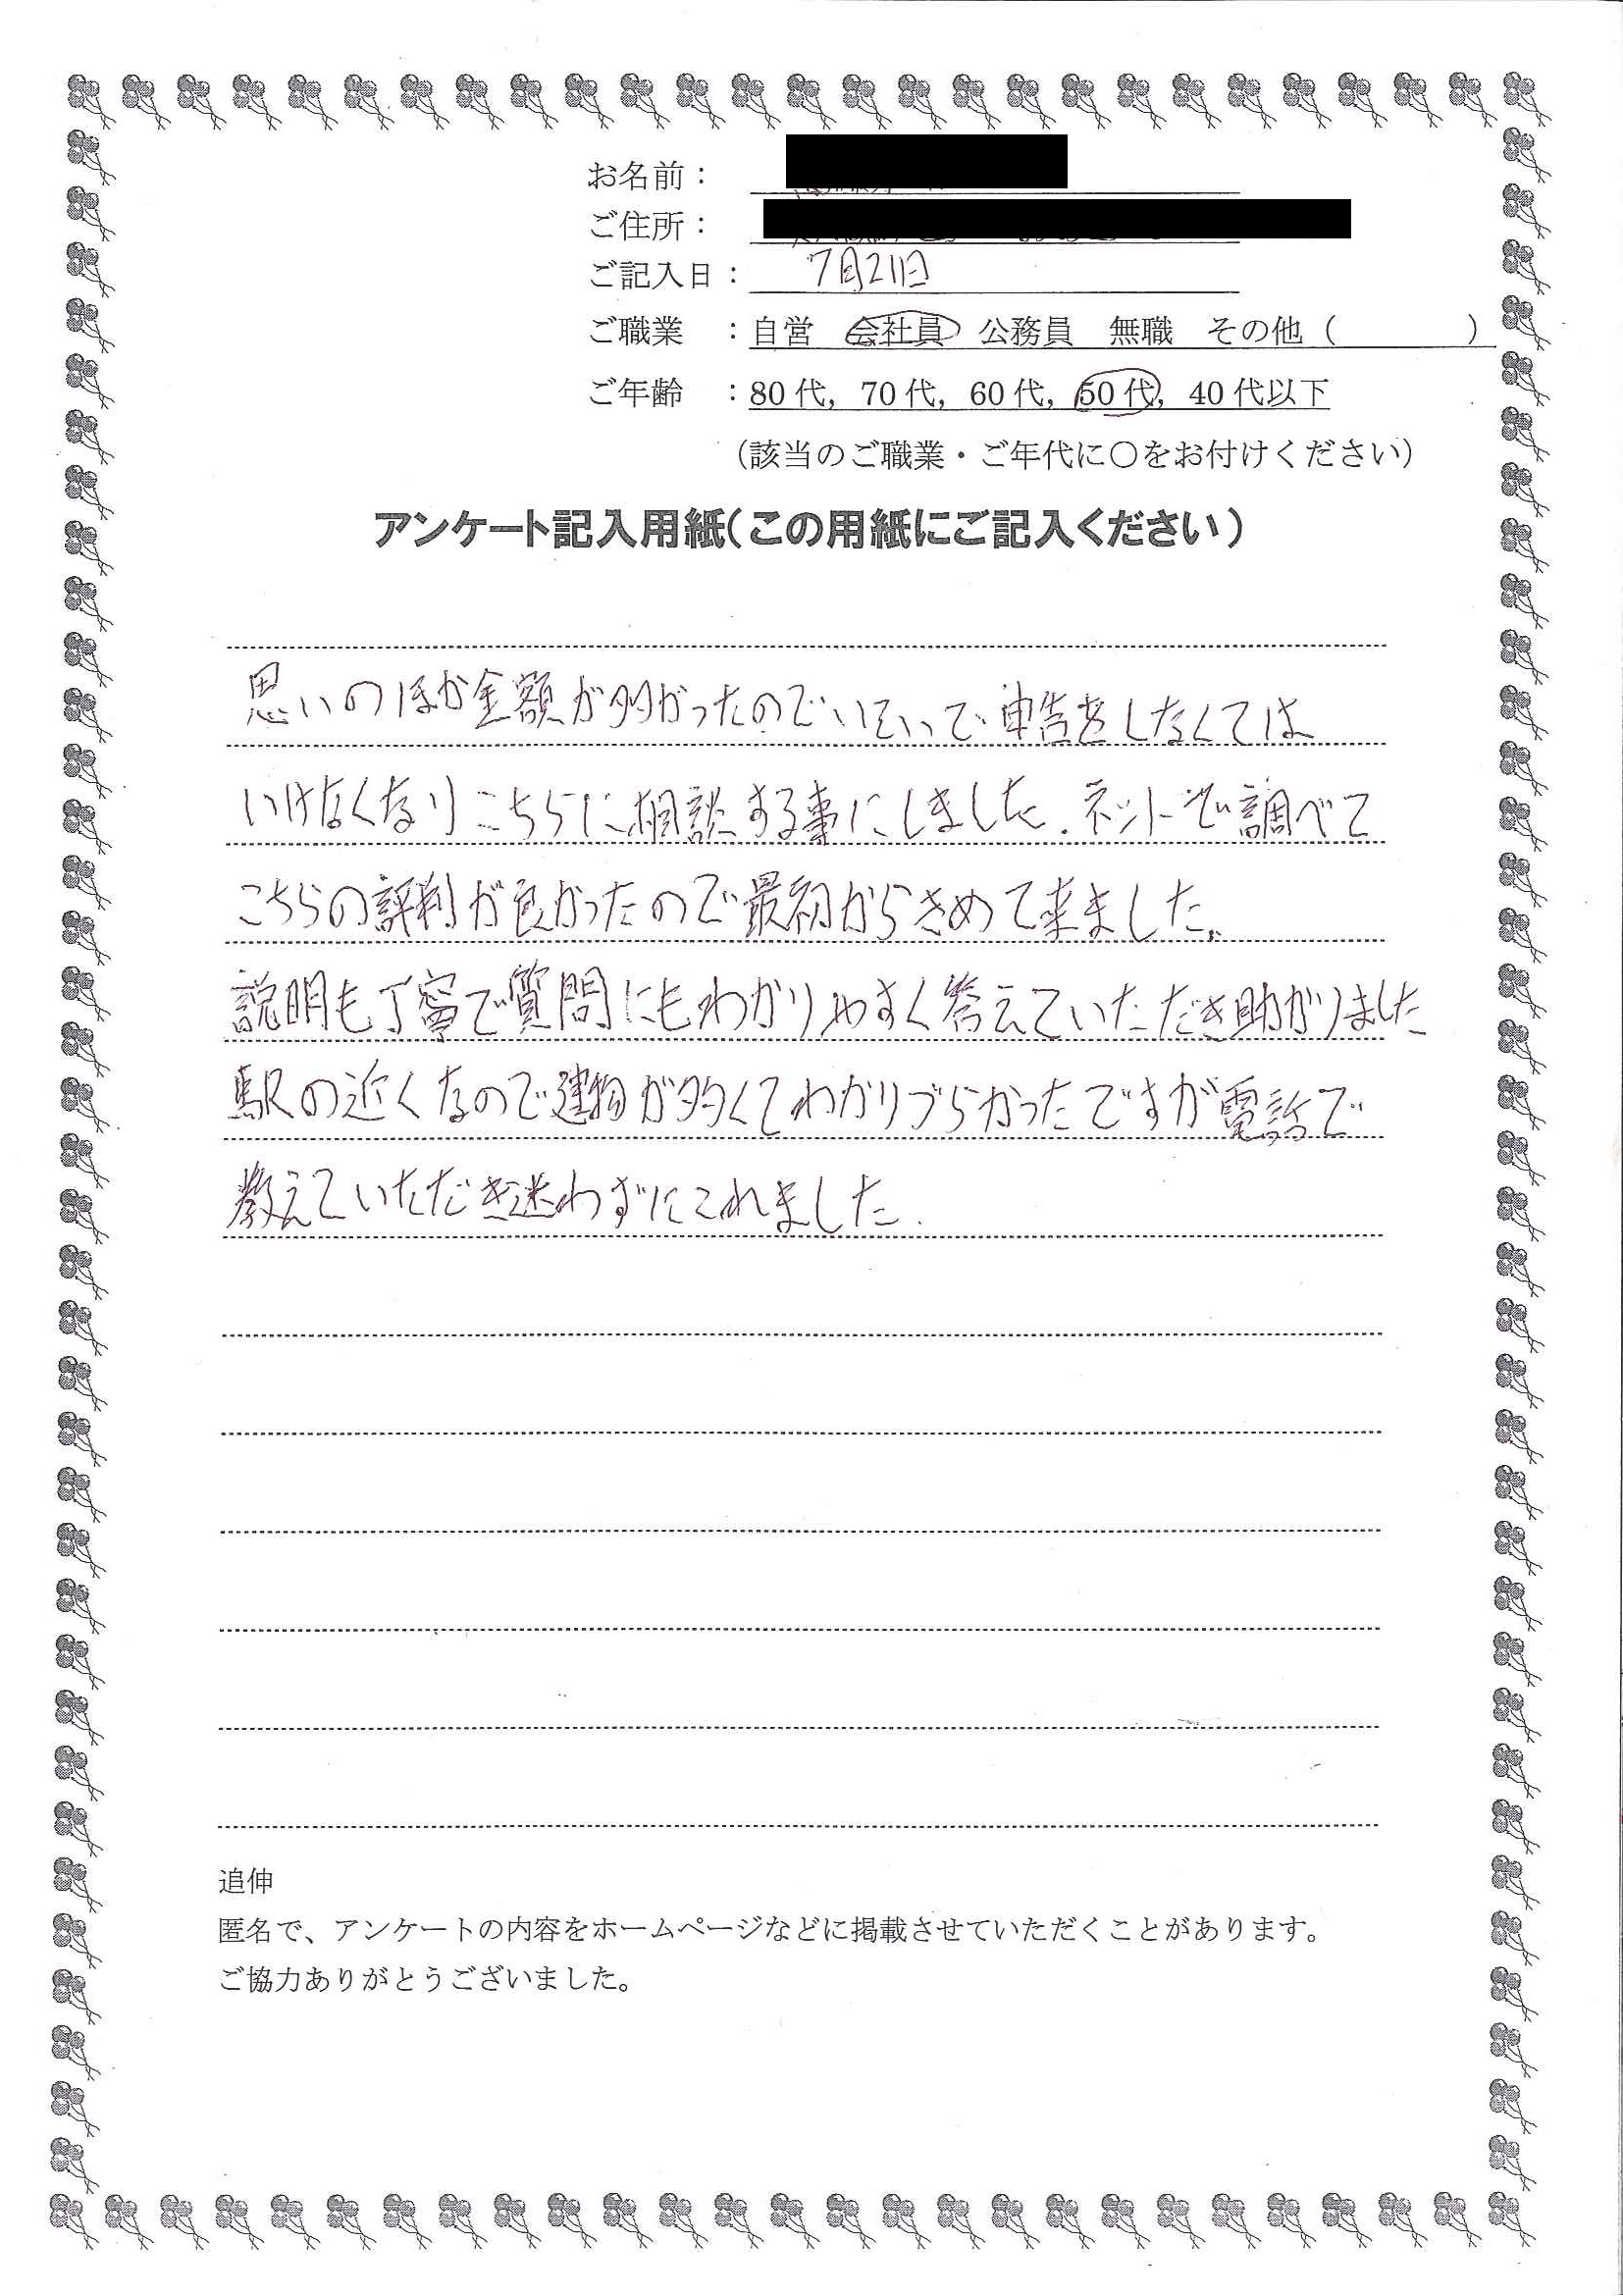 お名前：
ご住所：
ご記入日： 7月21日
ご職業　：自営　会社員　公務員　無職　その他（　　　　）
ご年齢　：80代，70代，60代，50代，40代以下
（該当のご職業・ご年代に○をお付けください）
アンケート記入用紙（この用紙にご記入ください）
思いのほか金額が多かったのでいそいで申告をしなくては
いけなくなりこちらに相談する事にしました．ネットで調べて
こちらの評判が良かったので最初からきめて来ました。
説明も丁寧で質問にもわかりやすく答えていただき助かりました
駅の近くなので建物が多くてわかりづらかったですが電話で
教えていただき迷わずにこれました．
追伸
匿名で、アンケートの内容をホームページなどに掲載させていただくことがあります。
ご協力ありがとうございました。